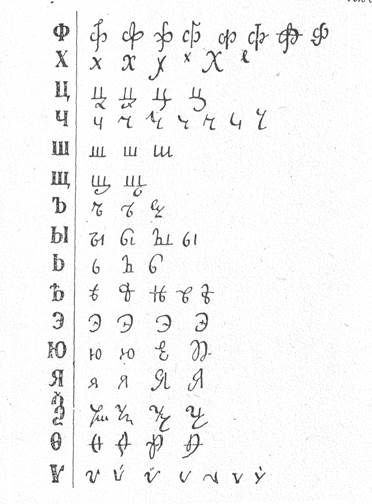 Ф ф ф ф ф ф ф ф ф
Х х х х х Х
Ц ц ц ц ц
Ч ч ч ч ч ч ч ч
Ш ш ш ш
Щ щ щ
Ъ ъ ъ ъ
Ы ы ы ы ы
Ь ь ь ь
Ѣ ѣ ѣ ѣ ѣ ѣ
Э Э Э Э Э
Ю ю ю
Я я я Я Я
Ѯ
Ѳ ѳ ѳ ѳ ѳ
Ѵ ѵ ѵ ѵ ѵ ѵ ѵ ѵ